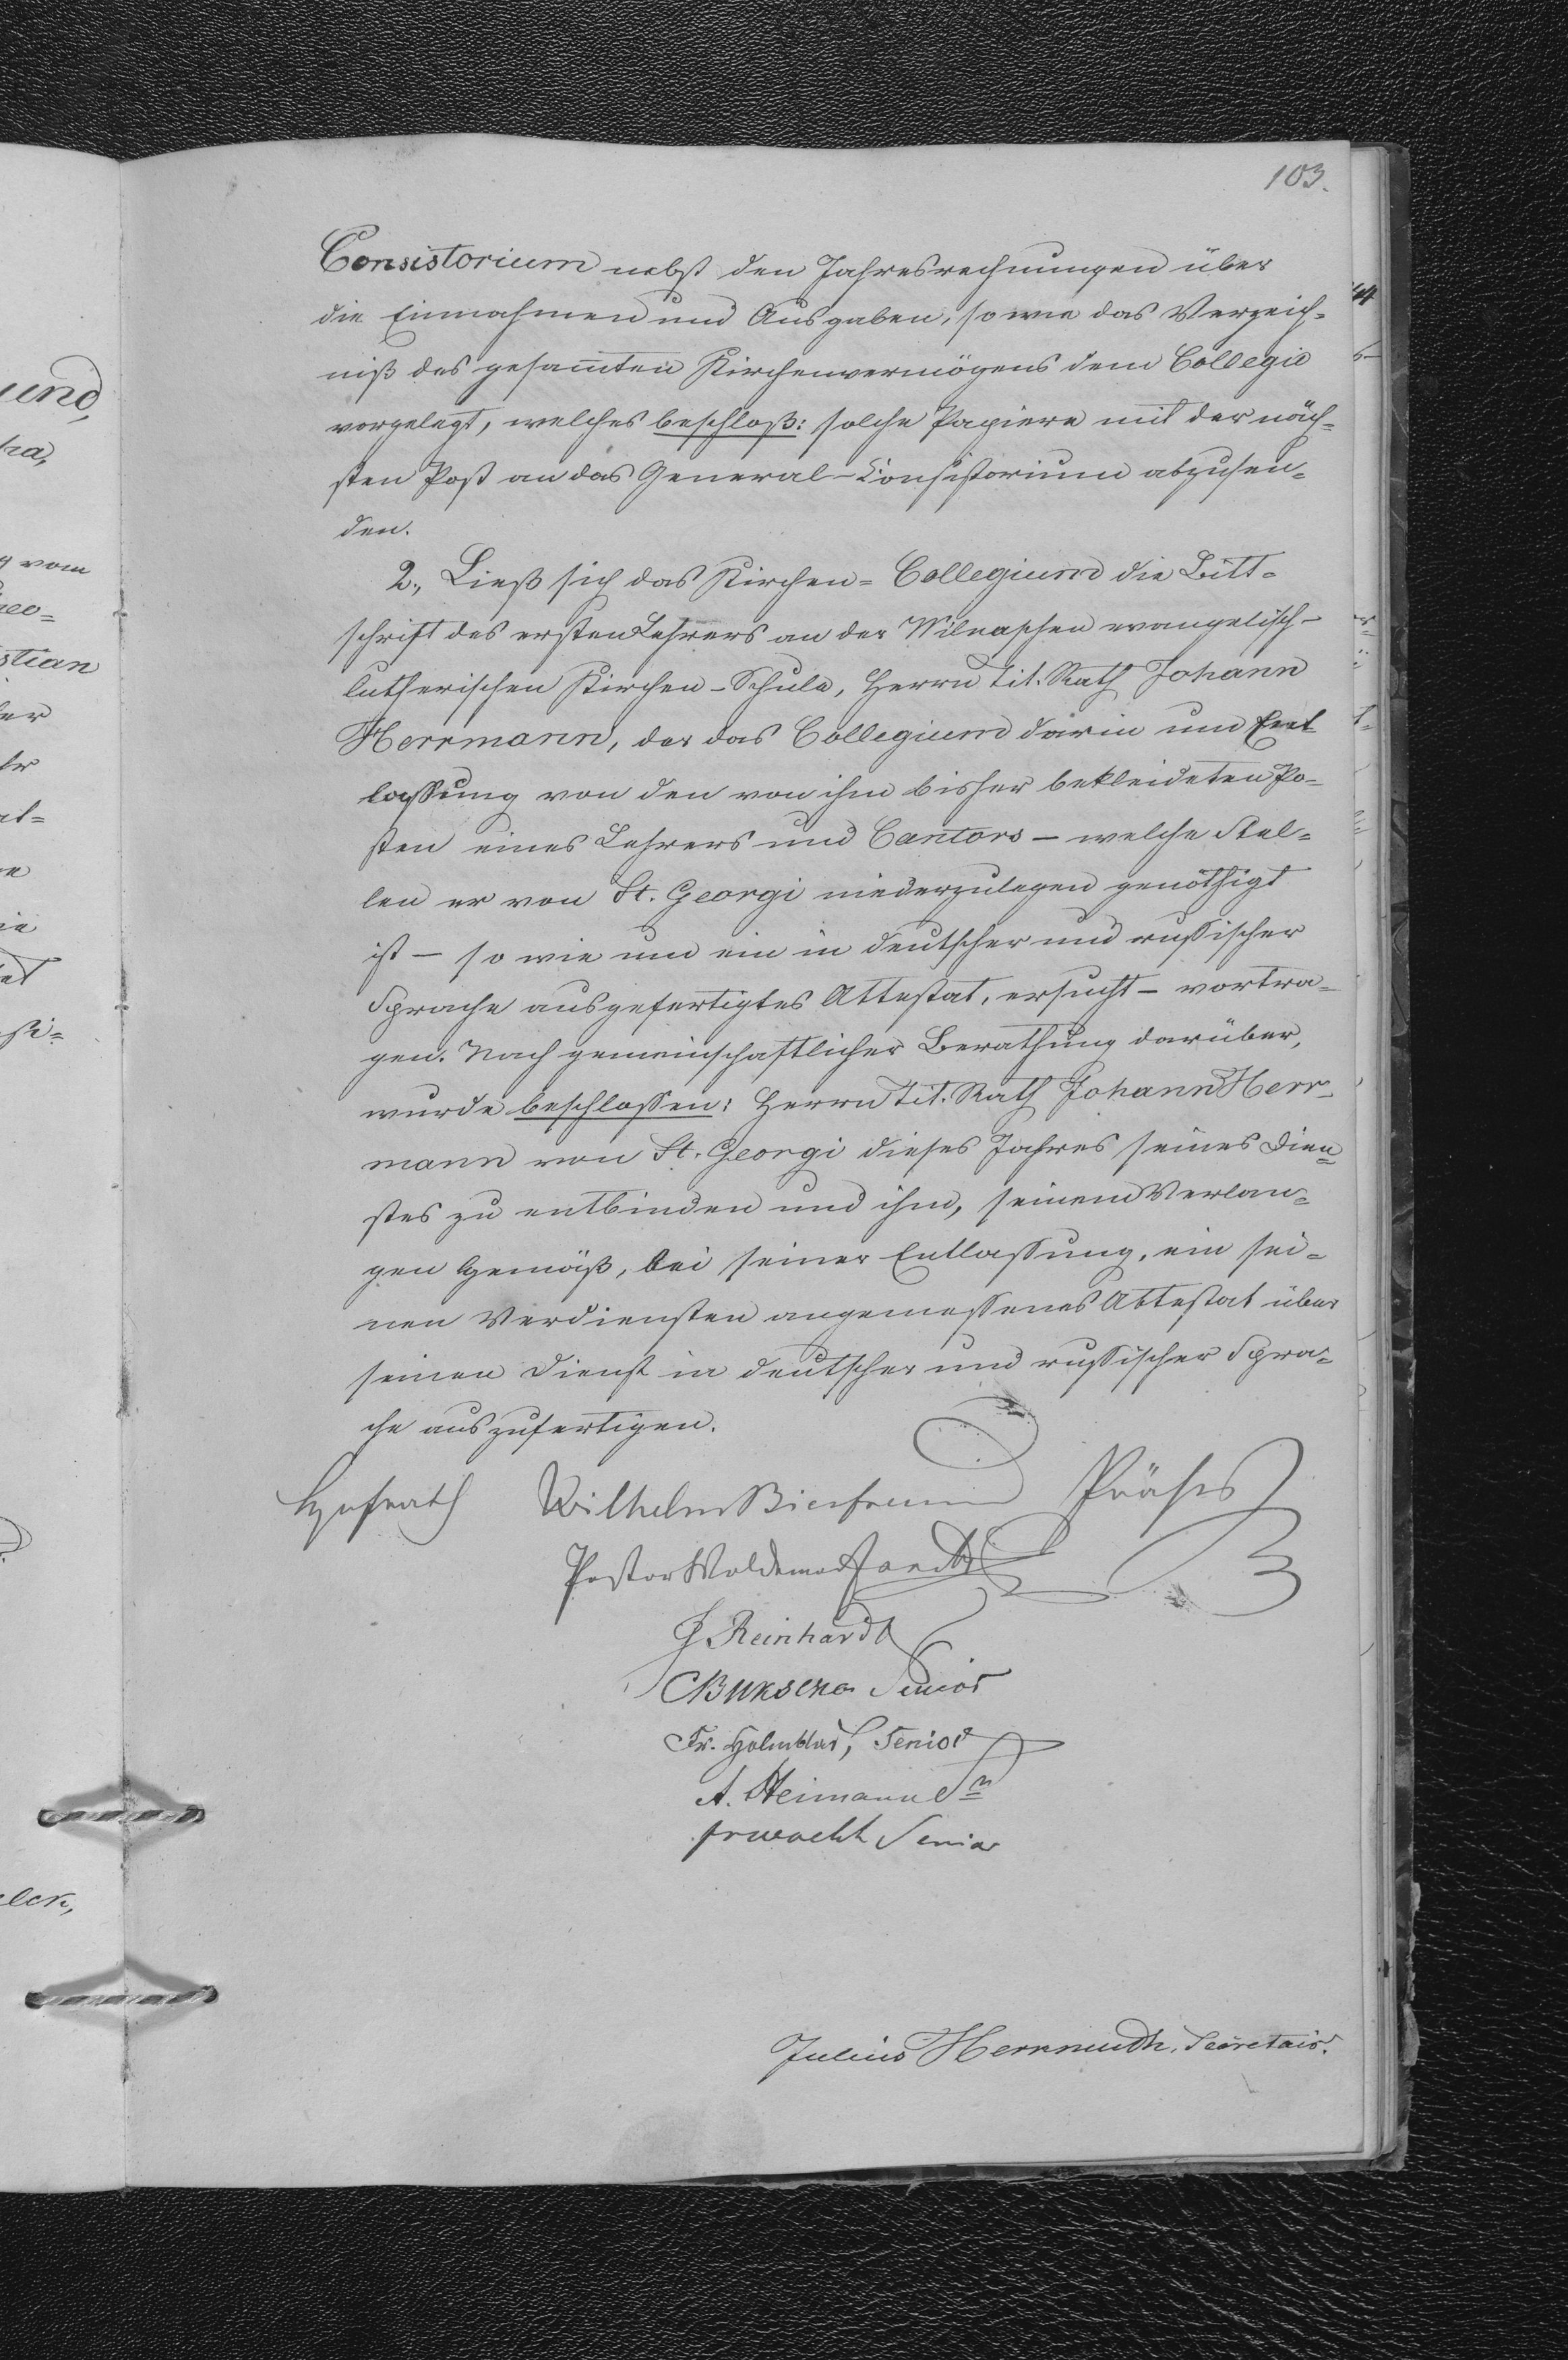 103.
Consistorium nebst den Jahresrechnungen über
die Einnahmen und Ausgaben, so wie das Verzeich=
niß des gesam̄ten Kirchenvermögens dem Collegio
vorgelegt, welches beschloß: solche Papiere mit der näch=
sten Post an das General-Consistorium abzusen=
den.
2., Ließ sich das Kirchen=Collegium die Bitt=
schrift des ersten Lehrers an der Wilnaschen evangelisch-
lutherischen Kirchen-Schule, Herrn Tit. Rath Johann
Herrmann, der das Collegium darin um Ent
lassung von den von ihm bisher bekleideten Po=
sten eines Lehrers und Cantors – welche Stel=
len er von St. Georgi niederzulegen genöthigt
ist – so wie um ein in deutscher und russischer
Sprache ausgefertigtes Attestat, ersucht – vortra=
gen. Nach gemeinschaftlicher Berathung darüber,
wurde beschlossen: Herrn Tit. Rath Johann Herr=
mann von St. Georgi dieses Jahres seines Dien=
stes zu entbinden und ihm, seinem Verlan=
gen Gemäß, bei seiner Entlassung, ein sei=
nen Verdiensten angemessenes Attestat über
seinen Dienst in deutscher und russischer Spra=
che auszufertigen.
Hofrath Wilhelm Bierfreund Präses
Pastor Woldemar
J. Reinhardt
Senior
Fr. Holmblad, Senior
A. Heimann Sr
Senior
Julius Secretair.
und,
vom
stian